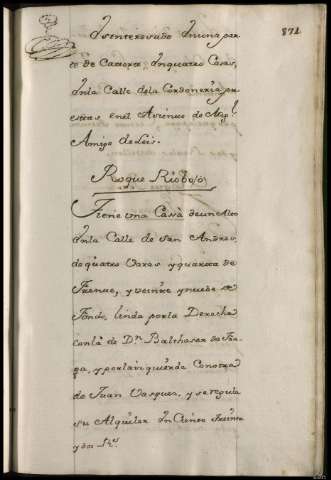 871
Ynteresado Ynuna par
te de Catorce, Ynquatro Casas,
Ynla Calle dela Cordoneria pu
estas enel Asiento de Mig.l
Amigo de Leis.
Roque Rioboó
Tiene una Casa deun Alto
Ynla Calle de San Andres,
de quatro Varas y quarta de
Frente, y veinte ynuebe de
Fondo, linda porla Derecha
conla de D.n Balthasar de Fra
ga, y porla izquierda Conotra
de Juan Vasques, y se regula
su Alquiler Yn Ciento treinta
y dos R.s